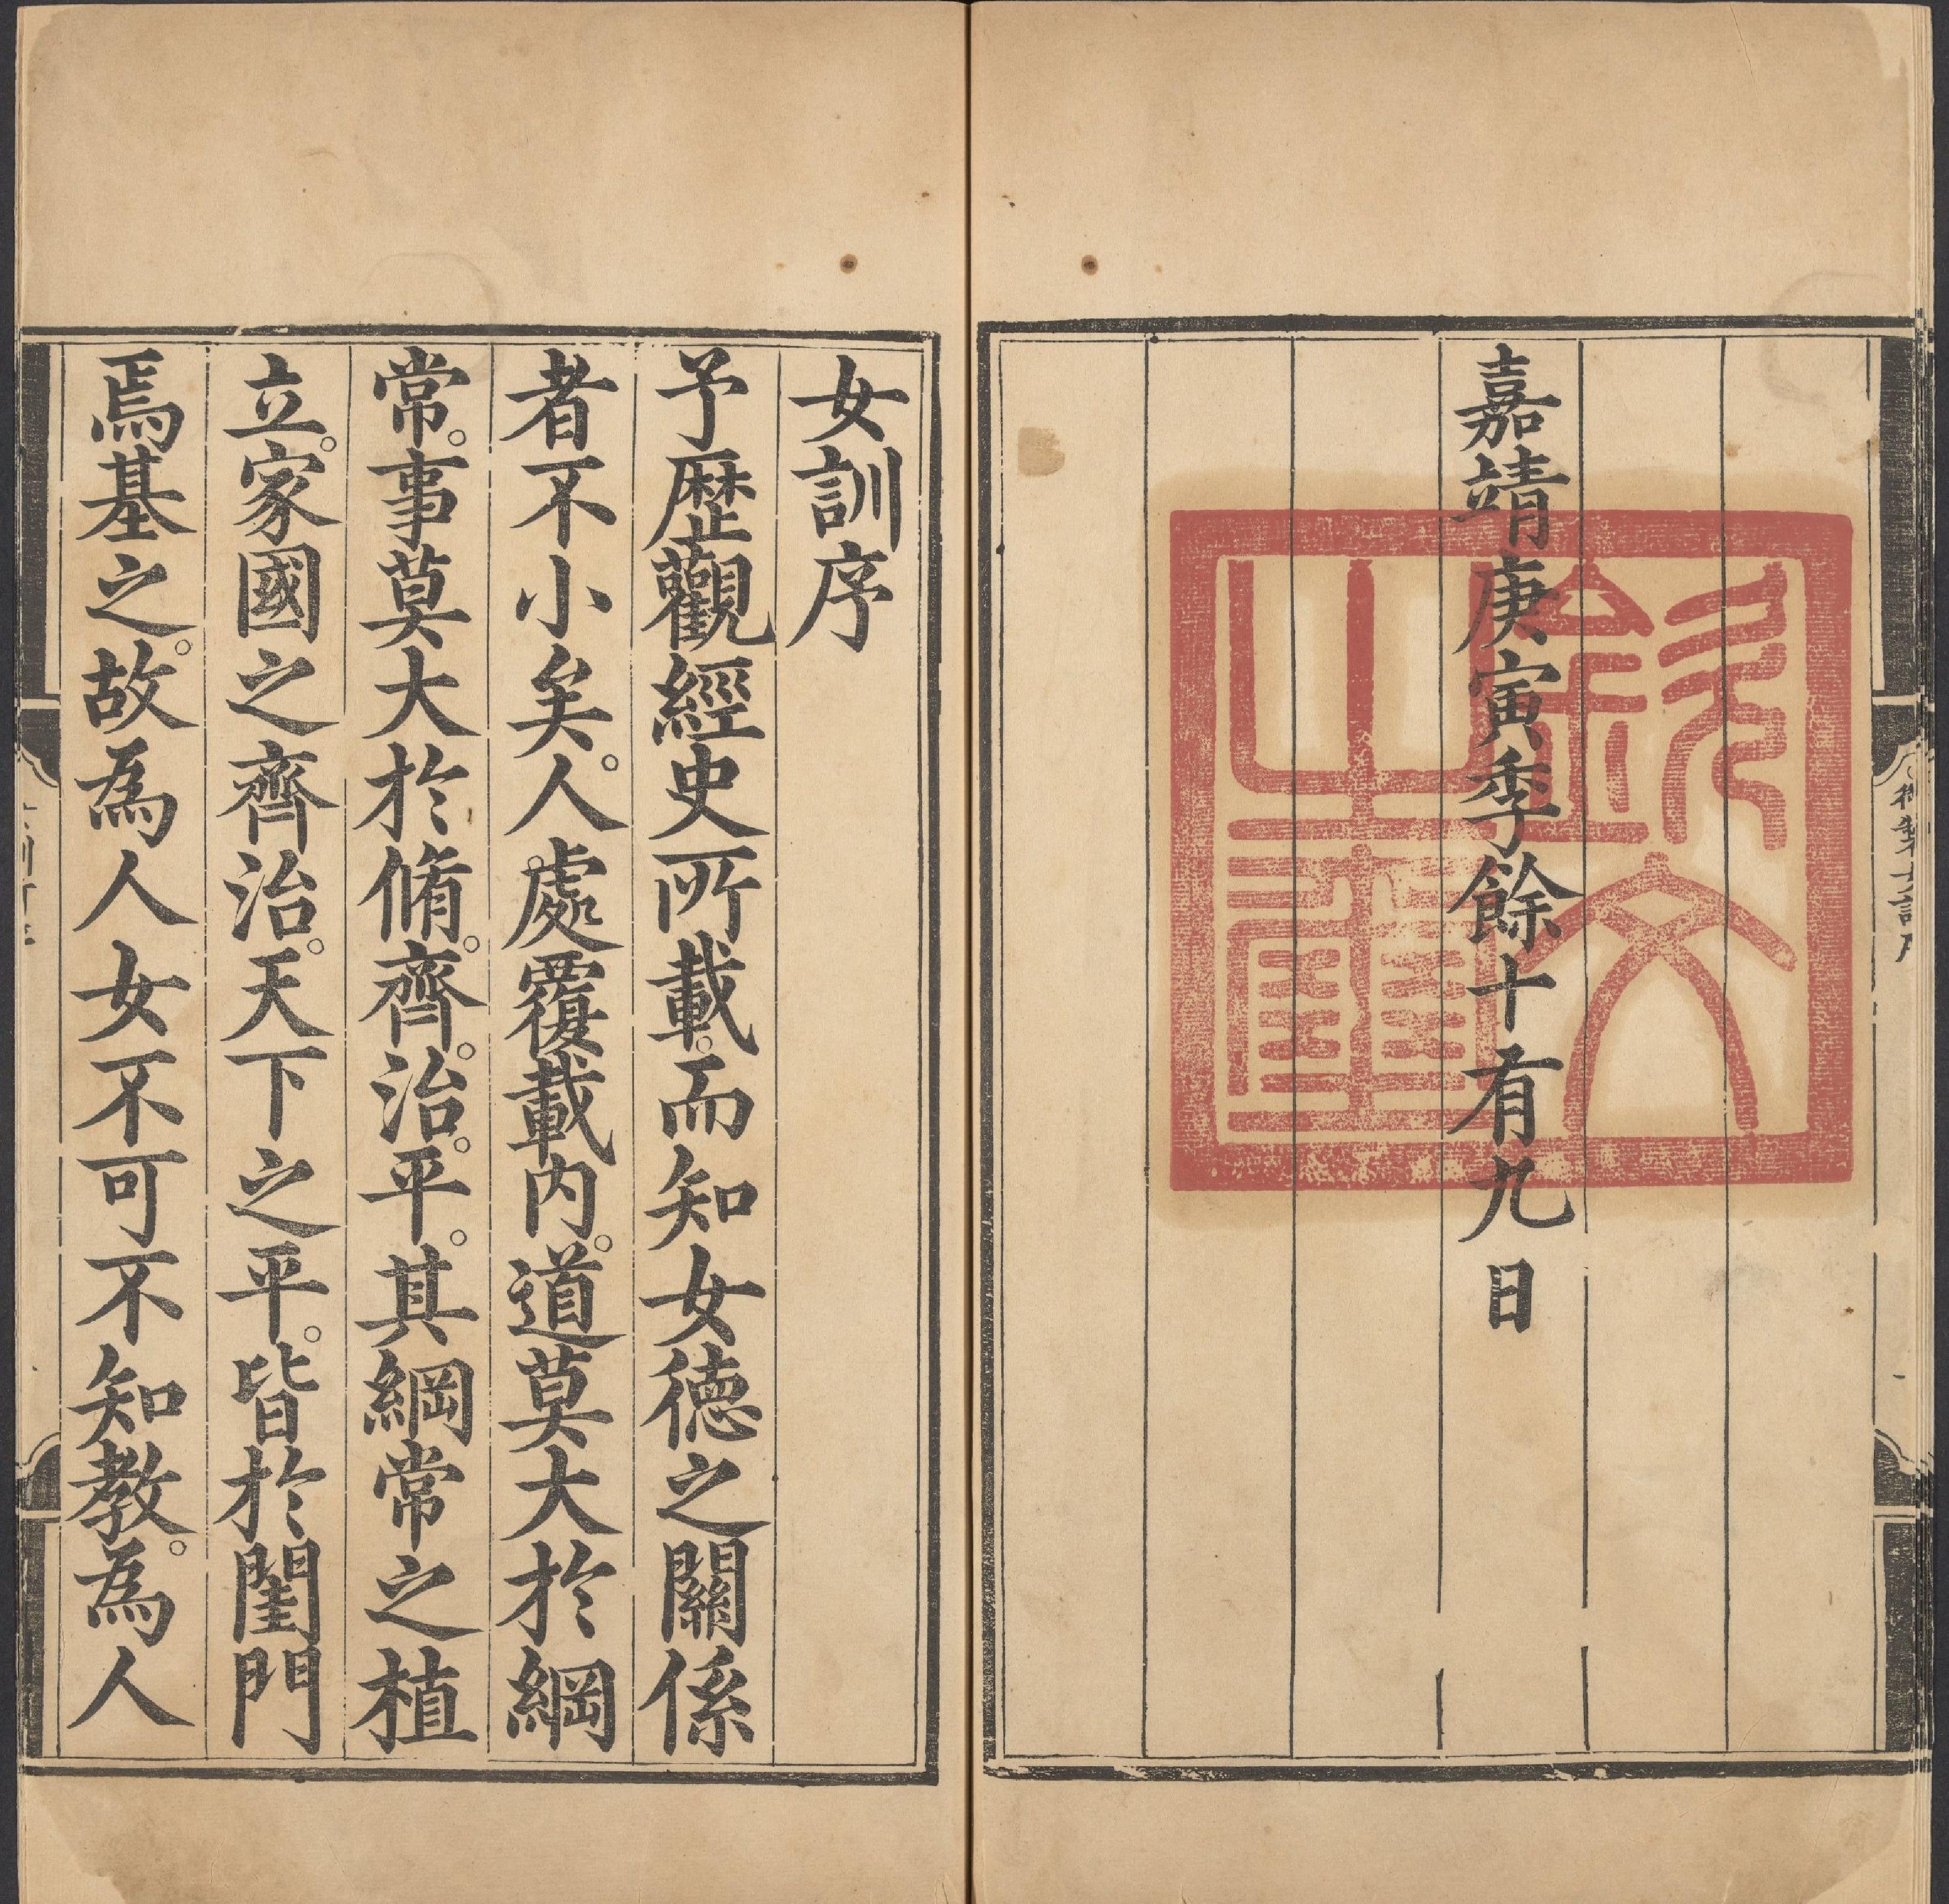 嘉靖庚寅季餘十有九日
欽文之璽
女訓序
予歷觀經史所載。而知女德之關係
者不小矣。人處覆載内。道莫大於綱
常。事莫大於脩。齊。治。平。其綱常之植
立。家國之齊治。天下之平。皆於閨門
焉基之。故為人女不可不知教。為人